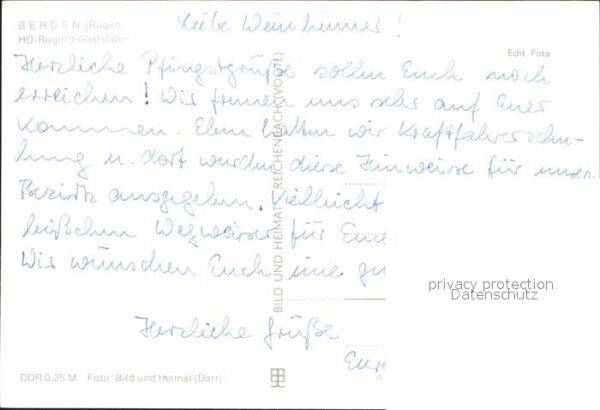 Liebe Weinheimer!
BERGEN (Rügen)
HO-Rugard-Gaststätte
Echt Foto
Herzliche Pfingstgrüße sollen Euch noch
erreichen! Wir freuen uns sehr auf Euer
Kommen. Eben hatten wir Kraftfahrerschu-
lung u. dort wurden diese Hinweise für unsern
Bezirk ausgegeben. Vielleicht
Wegweiser für Euch
Wir wünschen Euch eine gu
Herzliche Grüße
Eure
BILD UND HEIMAT REICHENBACH (VOGTL)
privacy protection
Datenschutz
DDR 0,25 M Foto: Bild und Heimat (Darr)
A